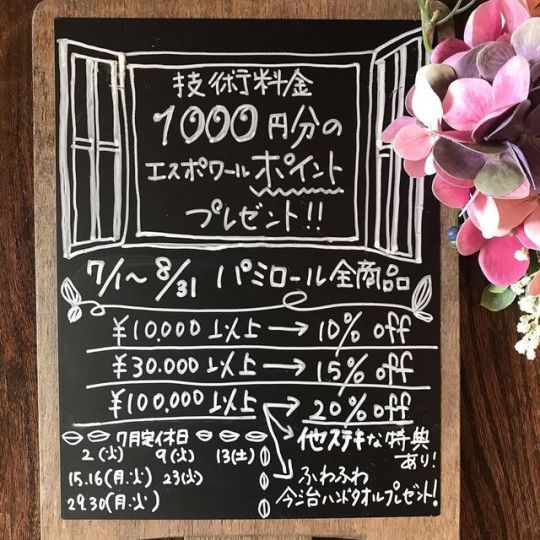 技術料金
1000円分の
エスポワールポイント
プレゼント!!
7/1〜8/31 パミロール全商品
¥10,000以上→10%off
¥30.000以上→15%off
¥100,000以上→20%off
→他ステキな特典あり!
→ふわふわ
今治ハンドタオルプレゼント!
7月定休日
2(火) 9(火) 13(土)
15.16(月.火) 23(火)
29.30(月.火)